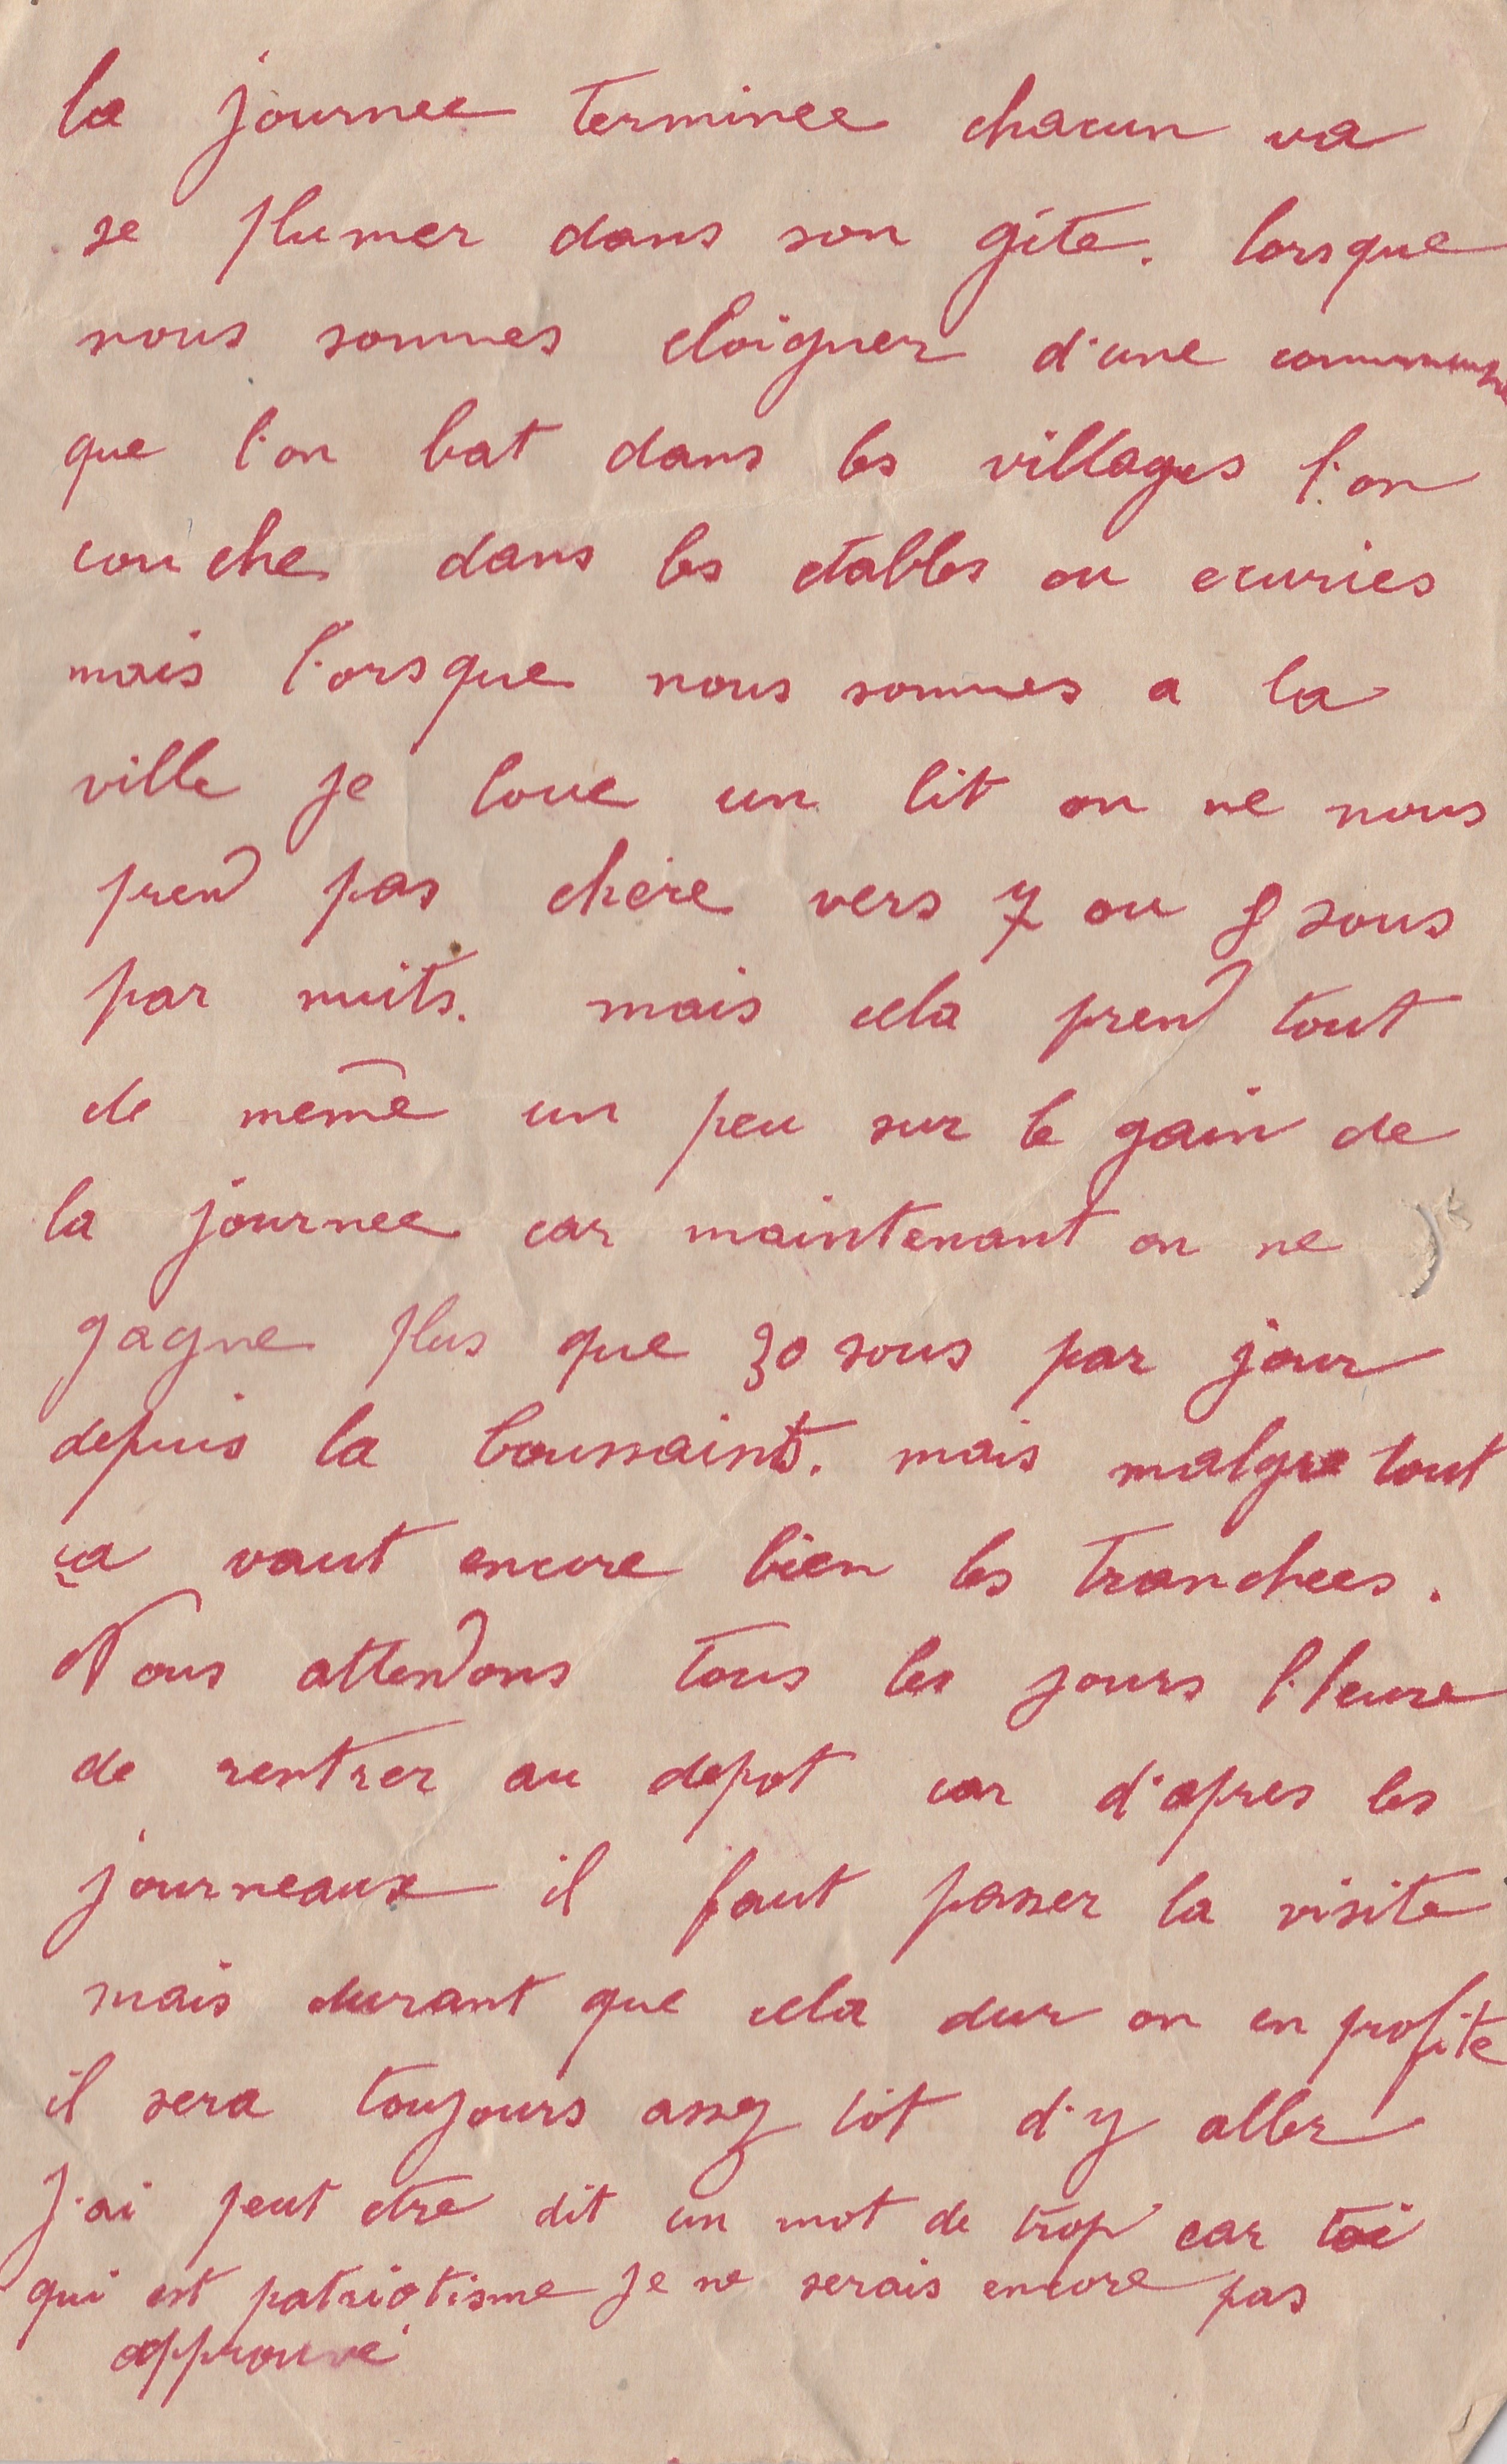 la journee terminee chacun va
se plumer dans son gite. lorsque
nous sommes eloigner d'une commune
que l'on bat dans les villages l'on
couche dans les etables ou ecuries
mais l'orsque nous sommes a la
ville je loue un lit on ne nous
prend pas chere vers 7 ou 8 sous
par nuits. mais cela prend tout
de meme un peu sur le gain de
la journee car maintenant on ne
gagne plus que 30 sous par jour
depuis la toussaint. mais malgre tout
ça vaut encore bien les tranchees.
Nous attendons tous les jours l'heure
de rentrer au depot car d'apres les
journeaux il faut passer la visite
mais durant que cela dur on en profite
il sera toujours assez tôt d'y aller
J'ai peut etre dit un mot de trop car toi
qui est patriotisme je ne serais encore pas
approuvé